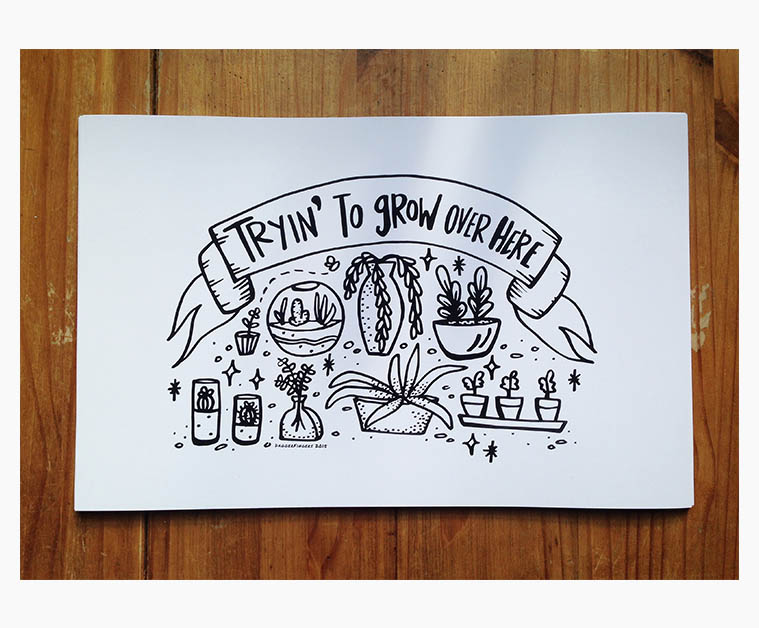 TRYIN' TO GROW OVER HERE
DAGGERFINGERS 2015